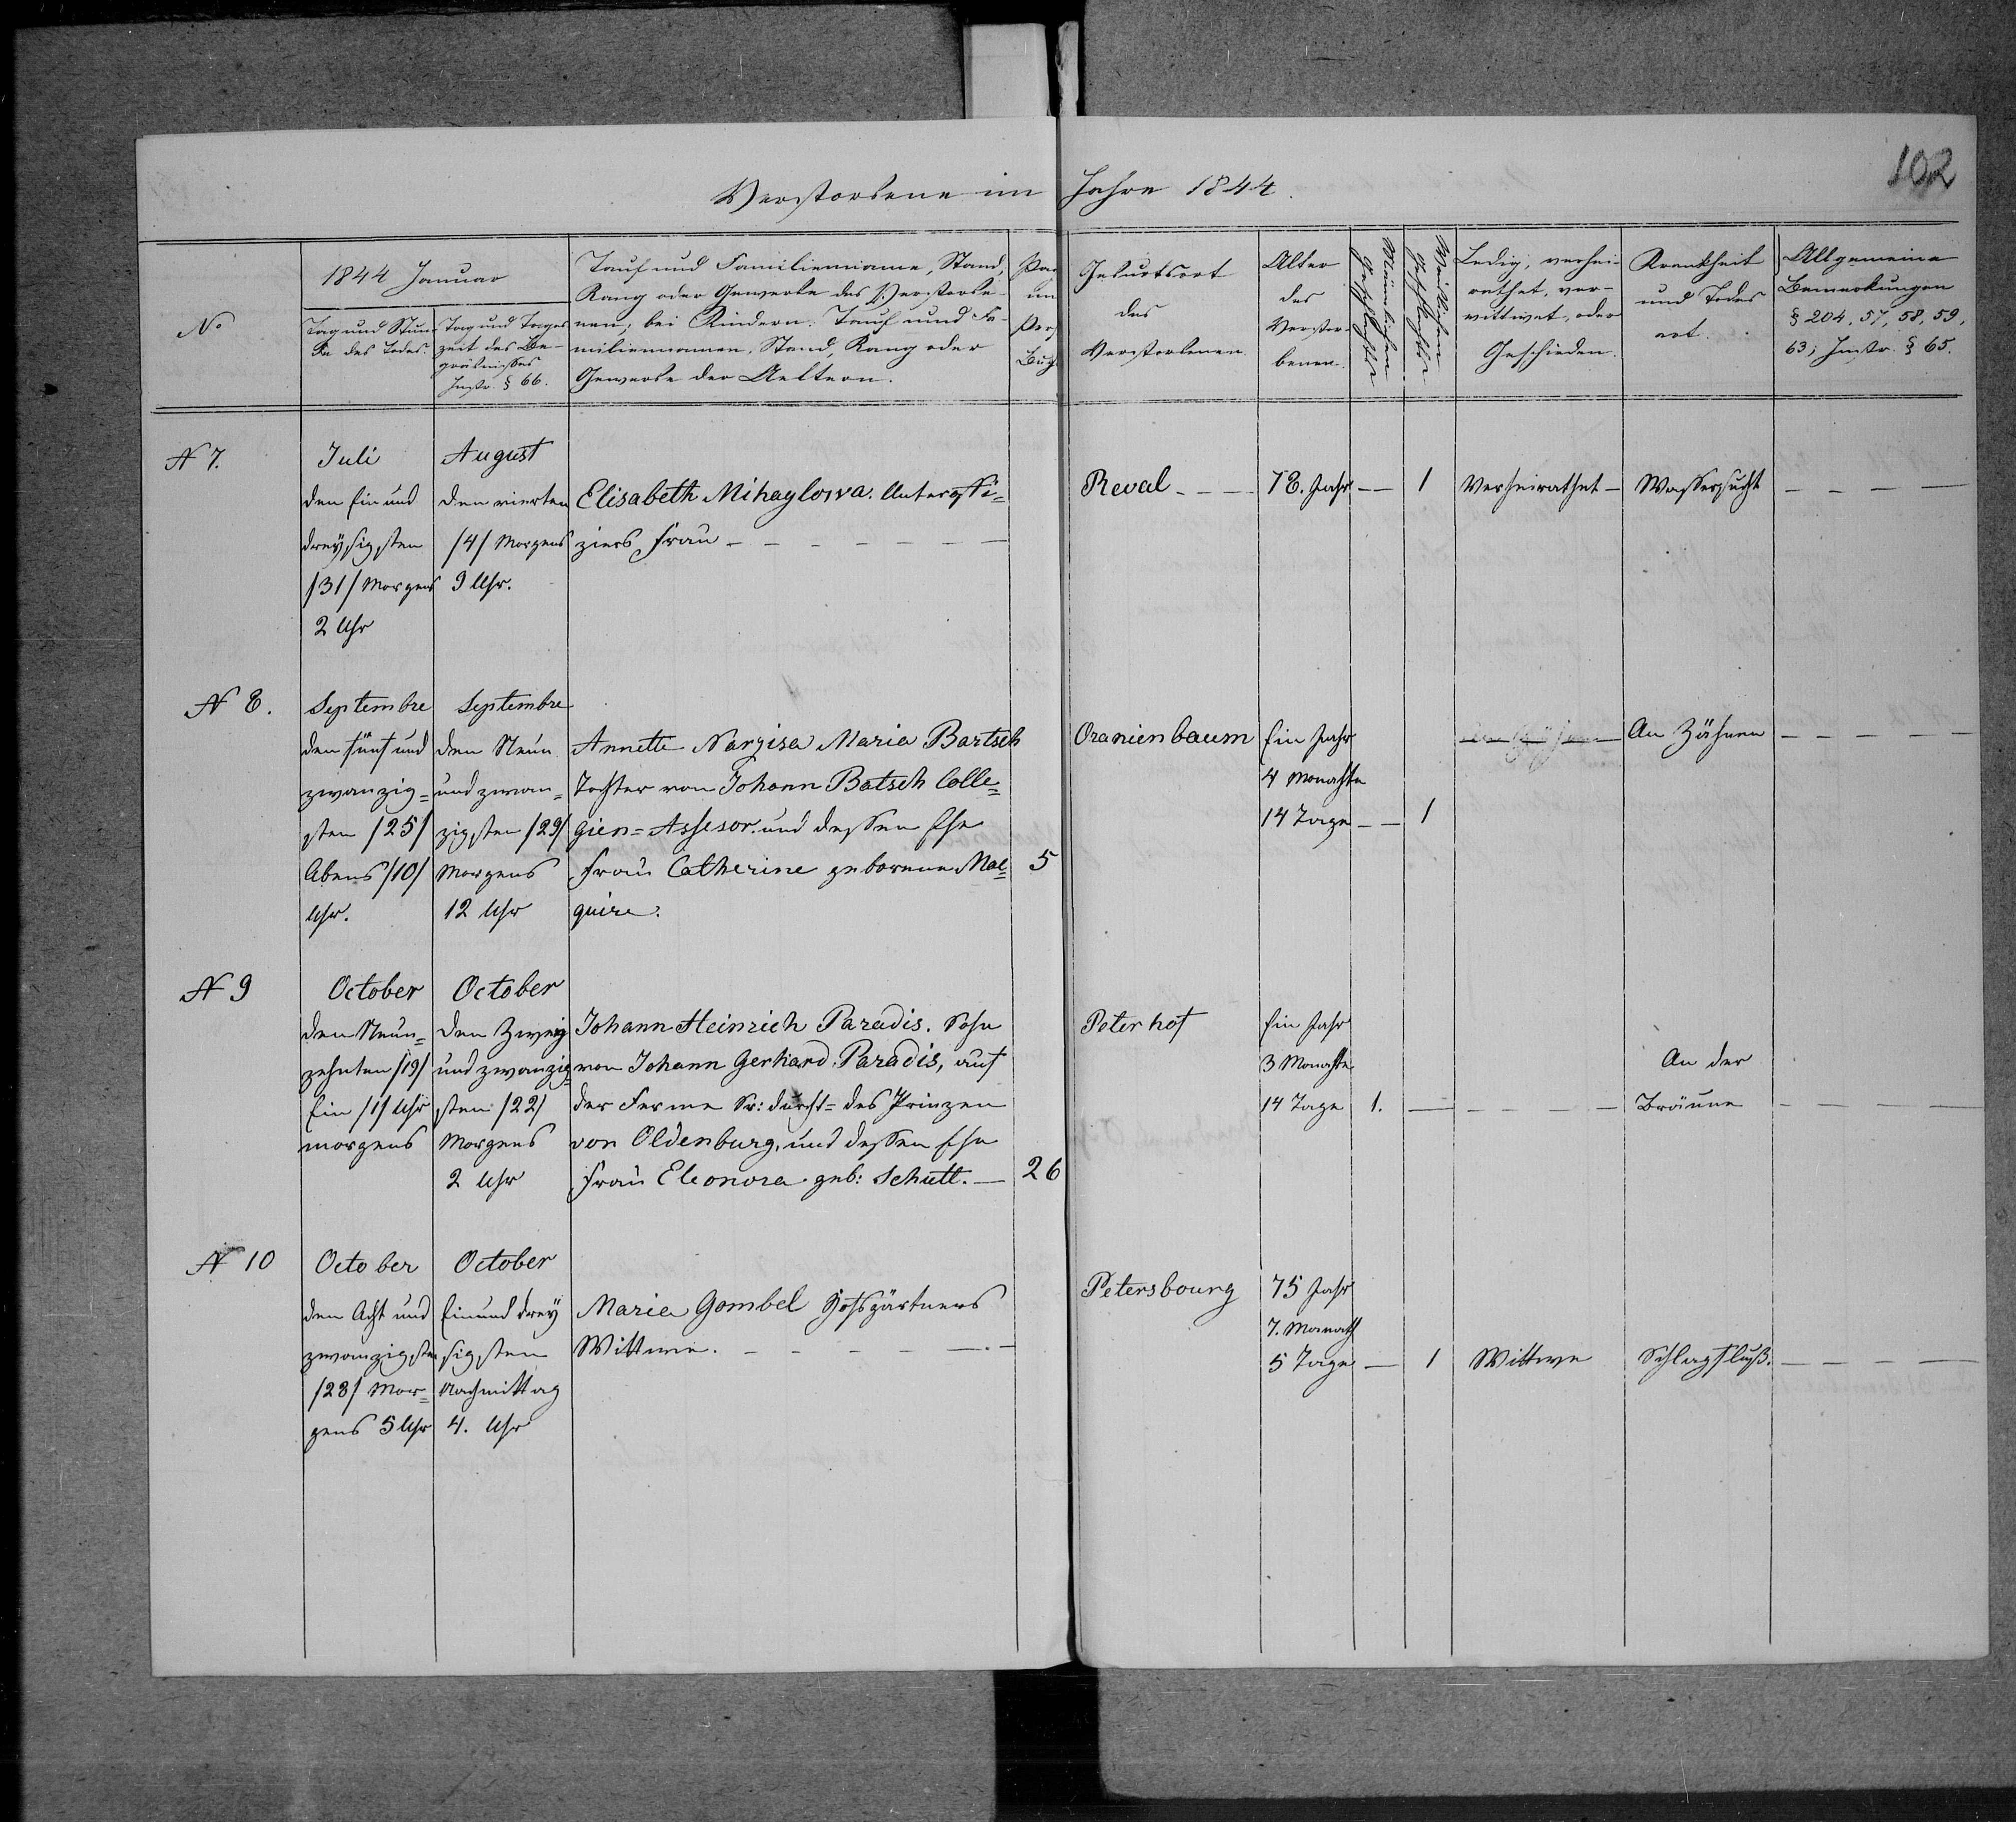 102
Verstorbene im Jahre 1844.
No
1844 Januar
Tag und Stun-
de des Todes.
Tag und Tages
zeit des Be-
gräbnisses
Instr. § 66.
Tauf und Familienname, Stand,
Rang oder Gewerbe des Verstorbe-
nen; bei Kindern: Tauf und Fa-
milienname, Stand, Rang oder
Gewerbe der Aeltern.
Geburtsort
des
Verstorbenen.
Alter
des
Verstor-
benen.
Männlichen
Geschlechts
Weiblichen
Geschlechts
Ledig, verhei-
rathet, ver-
wittwet, oder
Geschieden.
Krankheit
und Todes
art.
Allgemeine
Bemerkungen
§ 204, 57, 58, 59,
63; Instr. § 65.
N 7.
Juli
den Ein und
dreysigsten
/31/ Morgens
2 Uhr
August
den vierten
/4/ Morgens
9 Uhr.
Elisabeth Mihaylowa. Unteroffi=
ziers Frau
Reval
78. Jahr
1
Verheirathet
Wassersucht
N 8.
Septembre
den fünf und
zwanzig=
sten /25/
Abens /10/
Uhr.
Septembre
den Neun
und zwan=
zigsten /29/
Morgens
12 Uhr
Annette Nargisa Maria Bartsch
Tochter von Johann Batsch Colle=
gien=Assesor. und dessen Ehe
Frau Catherine geborene Mac=
quire.
5
Oranienbaum
Ein Jahr
4 Monathe
14 Tage
1
An Zähnen
N 9
October
den Neun=
zehnten /19/
Ein /1/ Uhr
morgens
October
den Zwey
und zwanzig=
sten /22/
Morgens
2 Uhr
Johann Heinrich Paradis. Sohn
von Johann Gerhard Paradis, auf
der Ferme Sr: durcht= des Prinzen
von Oldenburg, und dessen Ehe
Frau Eleonora geb: Schutt.
26
Peterhof
Ein Jahr
3 Monathe
14 Tage
1.
An der
Bräune
N 10
October
den Acht und
zwanzigsten
/28/ Mor=
gens 5 Uhr
October
Einund drey
sigsten
Nachmittag
4. Uhr
Maria Gombel Hofsgärtners
Wittwe.
Petersbourg
75 Jahr
7. Monath
5 Tage
1
Wittwe
Schlagfluß.